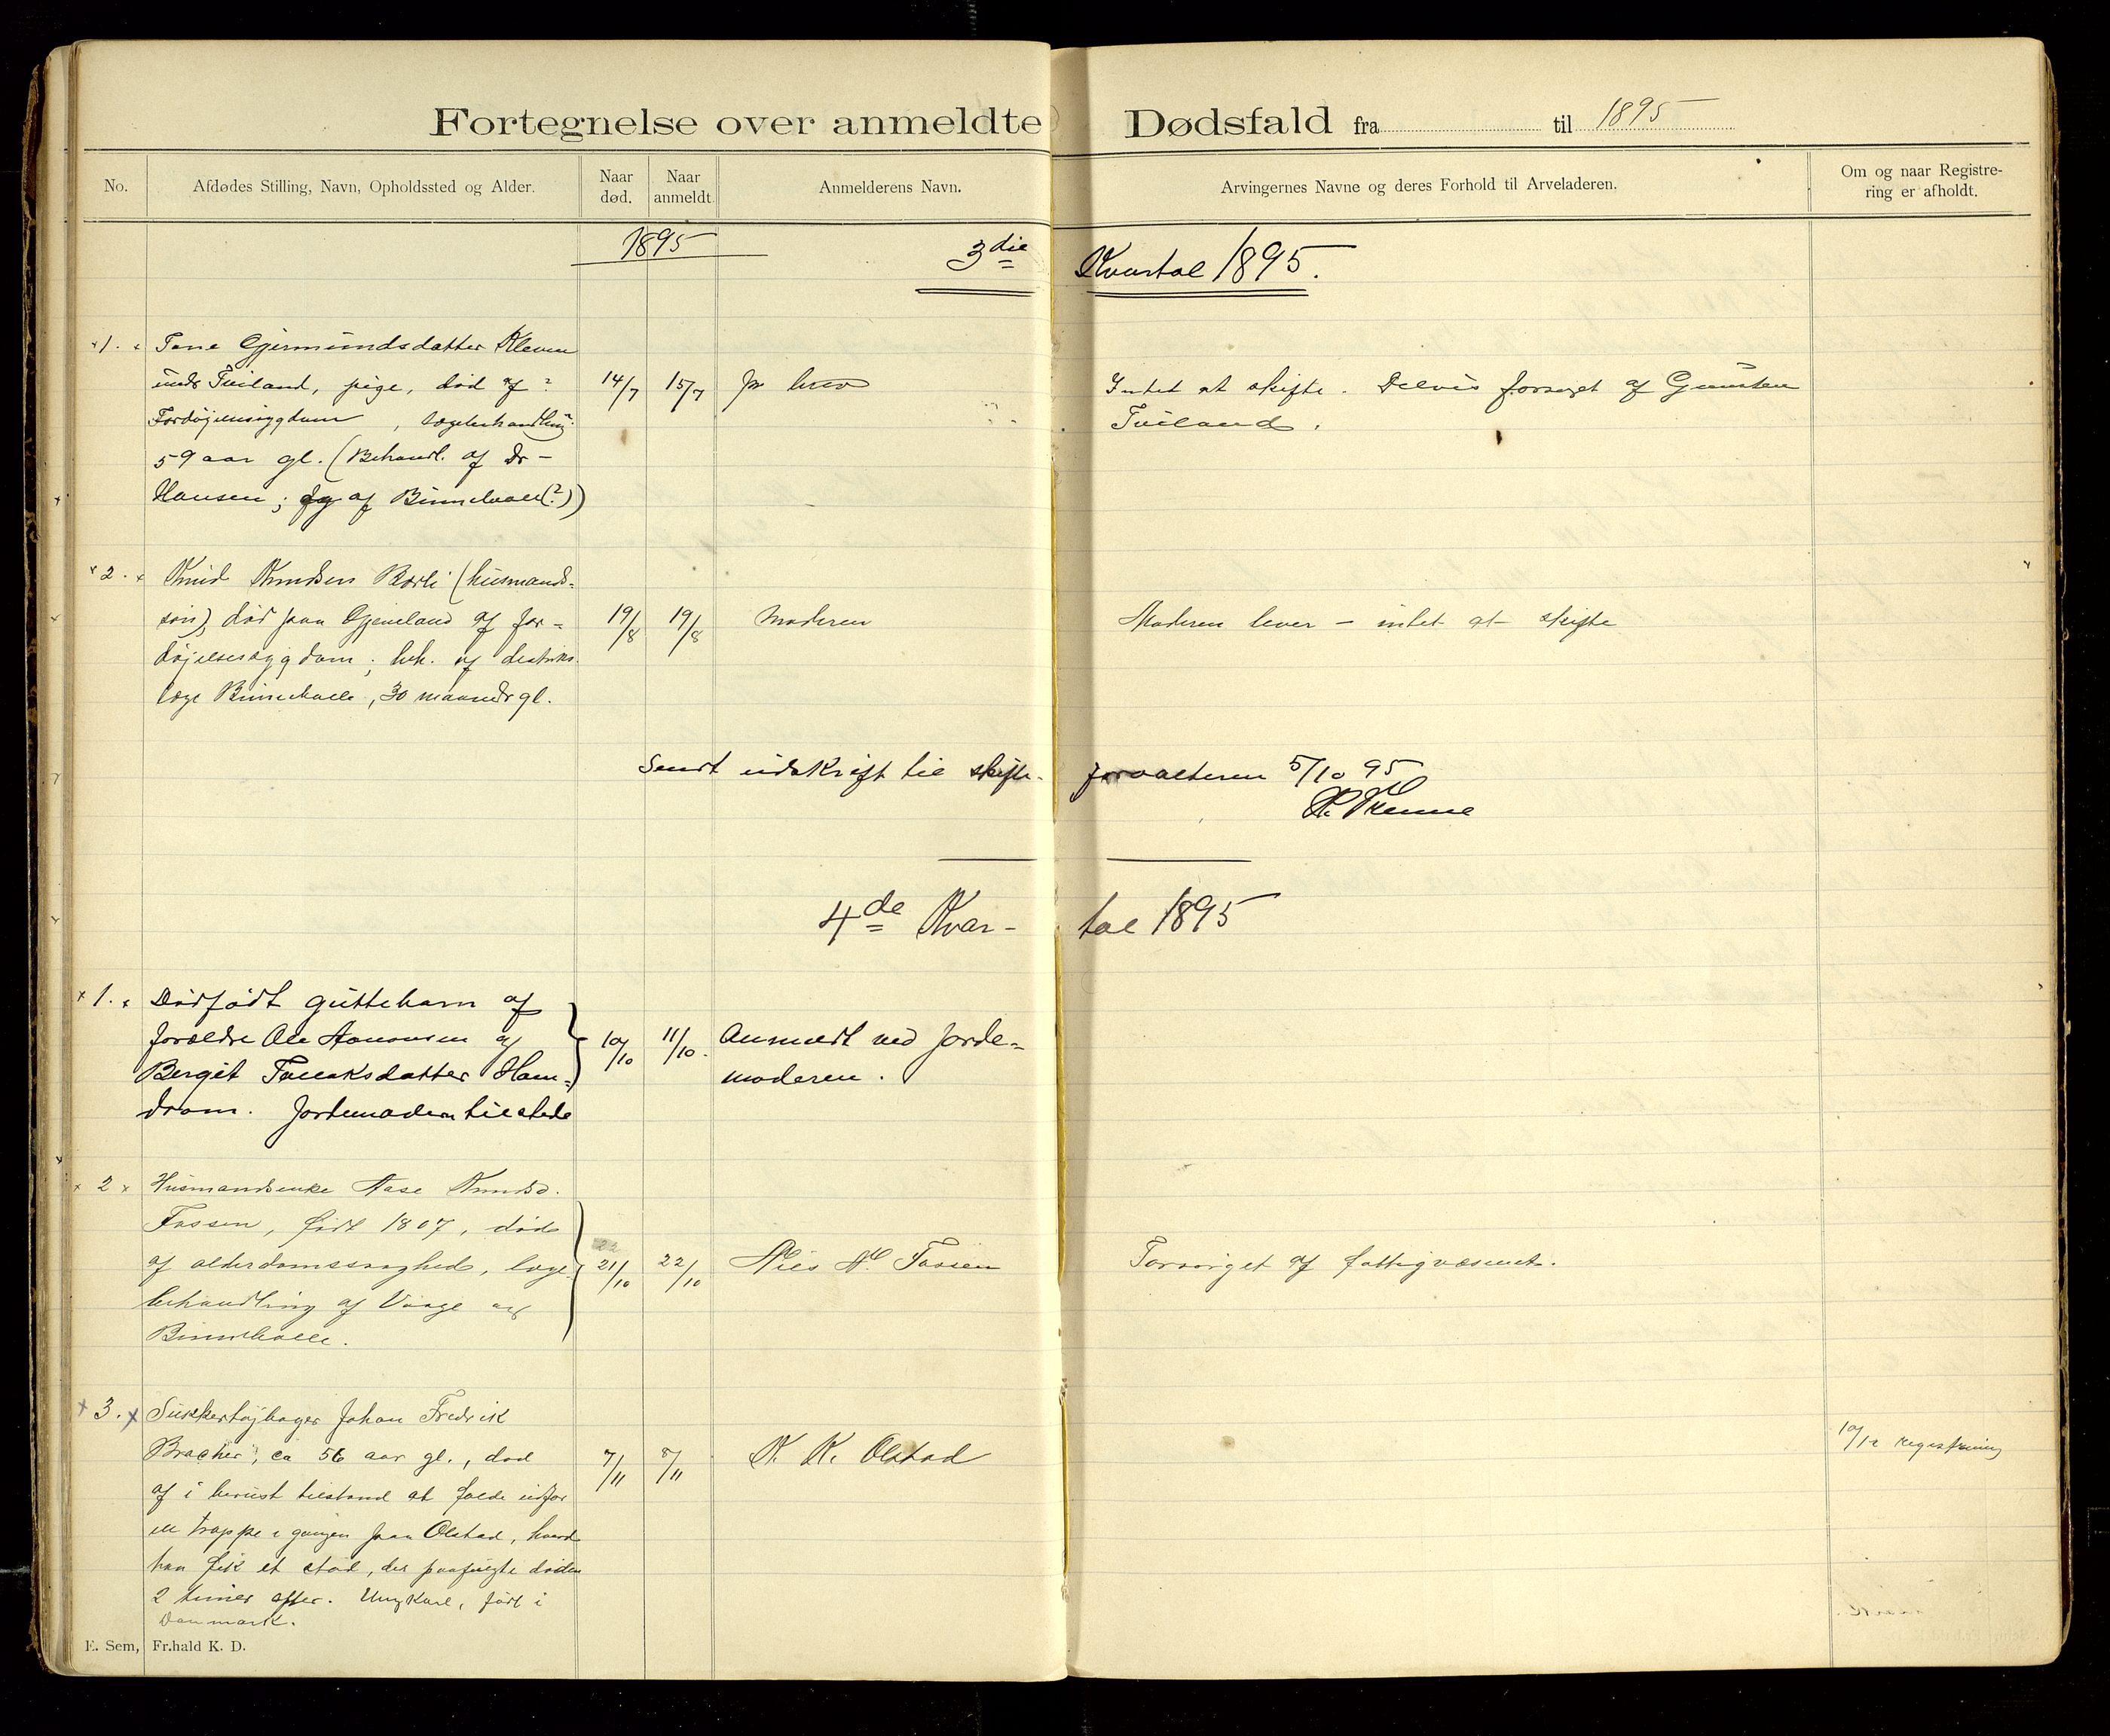 Fortegnelse over anmeldte Dødsfald fra til 1895
No.
Afdødes Stilling, Navn, Opholdssted og Alder.
Naar død.
Naar anmeldt
Anmelderens Navn.
Arvingernes Navne og deres Forhold til Arveladeren.
Om og naar Registre-
ring er afholdt.
1895
3die Kvartal 1895.
1. Tone Gjermundsdatter Kleven
Tveiland, pige, død af
14/7 15/7 pr brev Intet at skifte. Delvis forsørget af Gunsten
Fordøjelsessygdom, lægebehandling
Tveiland.
59 aar gl. (Behandl. af Dr-
Hansen; af Binnehvale(?))
2. Knud Knudsen Børli (husmands-
søn), død paa Gjeneland af for-
19/8 19/8 Moderen Moderen lever – intet at skifte
døjelsessygdom; beh. af distrikts
læge Binnehvale, 30 maander gl.
Sendt udskrift til skifte- forvalteren 5/10 95
4de Kvar- tal 1895
1. Dødfødt guttebarn af
forældre Ole Aanonsen og
10/10 11/10. Anmeldt ved Jorde-
Bergit Tallaksdatter Ham-
moderen.
drom. Jordemoderen tilstede
2 Husmandsenke Aase Knudsd.
Fossen, født 1807, død
af alderdomssvaghed, læge
21/10 22/10 Nils N. Fossen Forsørget af fattigvæsenet.
behandling af Vaage og
Binnehvale.
3. Sukkertøjbager Johan Fredrik
Bracher, ca 56 aar gl., død
7/11 8/11 K. K. Olstad 10/12 registrering
af i beruset tilstand at falde udfor
en trappe i gangen paa Olstad, hvorved
han fik et stød, der paafulgte døden
2 timer efter. Ungkarl, født i
Danmark.
E. Sem, Fr.hald K. D.